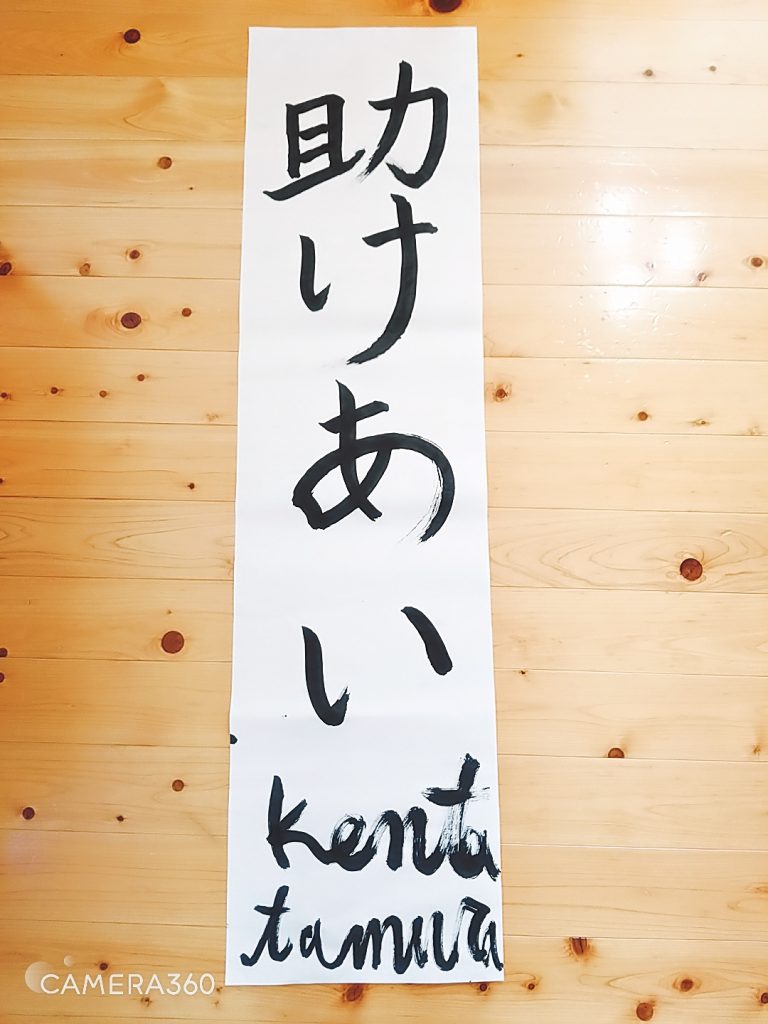 助けあい
Kenta
tamura
CAMERA360